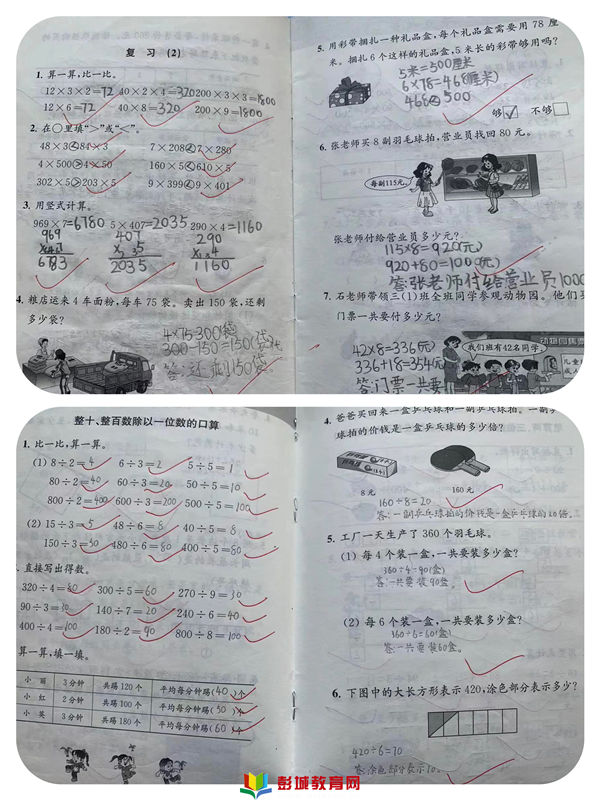 复 习 (2)
1. 算一算,比一比。
12×3×2=72 40×2×4=320 200×3×3=1800
12×6=72 40×8=320 200×9=1800
2. 在○里填“>”或“<”。
48×3<84×3 7×208<7×280
4×500>4×50 160×5<610×5
302×5>203×5 9×399<9×401
3. 用竖式计算。
969×7=6780 5×407=2035 290×4=1160
969 407 290
6783 2035 1160
4. 粮店运来 4 车面粉,每车 75 袋。卖出 150 袋,还剩
多少袋?
4×75=300(袋)
300-150=150(袋)
答:还剩150袋。
5. 用彩带捆扎一种礼品盒,每个礼品盒需要用 78 厘
米。捆扎 6 个这样的礼品盒,5 米长的彩带够用吗?
5米=500厘米
6×78=468(厘米)
468<500
够 ✓ 不够
6. 张老师买 8 副羽毛球拍,营业员找回 80 元。
每副115元。
张老师付给营业员多少元?
115×8=920(元)
920+80=1000(元)
答:张老师付给营业员1000
7. 石老师带领三(1)班全班同学参观动物园。他们买
门票一共要付多少元?
42×8=336(元)
336+18=354(元)
答:门票一共要
我们班有42名同学。
整十、整百数除以一位数的口算
1. 比一比,算一算。
(1) 8÷2=4 6÷3=2 5÷5=1
80÷2=40 60÷3=20 50÷5=10
800÷2=400 600÷3=200 500÷5=100
(2) 15÷3=5 48÷6=8 40÷5=8
150÷3=50 480÷6=80 400÷5=80
直接写出得数。
320÷4=80 300÷5=60 270÷9=30
90÷3=30 140÷7=20 240÷6=40
400÷4=100 180÷2=90 800÷8=100
算一算,填一填。
小 丽 3分钟 共踢120个 平均每分钟踢(40)个
小 红 2分钟 共踢100个 平均每分钟踢(50)个
小 英 3分钟 共踢180个 平均每分钟踢(60)个
4. 爸爸买回来一盒乒乓球和一副乒乓球拍。一副乒
球拍的价钱是一盒乒乓球的多少倍?
8元 160元
160÷8=20
答:一副乒乓球拍的价钱是一盒乒乓球的20倍。
5. 工厂一天生产了 360 个羽毛球。
(1) 每 4 个装一盒,一共要装多少盒?
360÷4=90(盒)
答:一共要装90盒。
(2) 每 6 个装一盒,一共要装多少盒?
360÷6=60(盒)
答:一共要装60盒。
6. 下图中的大长方形表示 420,涂色部分表示多少?
420÷6=70
答:涂色部分表示70。
彭城教育网